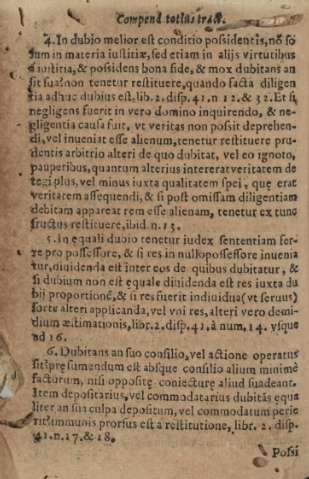 Compend totius tract.
4. In dubio melior est conditio possidentis, nõ so
lum in materia iustitiæ, sed etiam in alijs virtutibus
à iustitia, & possidens bona fide, & mox dubitans an
sit suä non tenetur restituere, quando facta diligen
tia adhuc dubius est, lib. 2. disp. 41. n. 12. & 32. Et si
negligens fuerit in vero domino inquirendo, & ne-
gligentia causa fuit, vt veritas non possit deprehen-
di, vel inueniat esse alienum, tenetur restituere pru-
dentis arbitrio alteri de quo dubitat, vel eo ignoto,
pauperibus, quantum alterius intererat veritatem de
tegi plus, vel minus iuxta qualitatem spei, quę erat
veritatem assequendi, & si post omissam diligentiam
debitam appareat rem esse alienam, tenetur ex tunc
fructus restituere, ibid. n. 13.
5. In ęquali dubio tenetur iudex sententiam fer-
re pro possessore, & si res in nullo possessore inuenia
tur, diuidenda est inter eos de quibus dubitatur, &
si dubium non est ęquale diuidenda est res iuxta du
bij proportionē, & si res fuerit indiuidua (vt seruus)
sorte alteri applicanda, vel vni res, alteri vero demi-
dium æstimationis, libr. 2. disp. 41. à num. 14. vsque
ad 16.
6. Dubitans an suo consilio, vel actione operatus
sit pręsumendum est absque consilio alium minimè
facturum, nisi oppositę coniecturę aliud suadeant.
Item depositarius, vel commodatarius dubitãs equa
liter an sua culpa depositum, vel commodatum perie
rit immunis prorsus est à restitutione, libr. 2. disp.
41. n. 17. & 18.
Possi